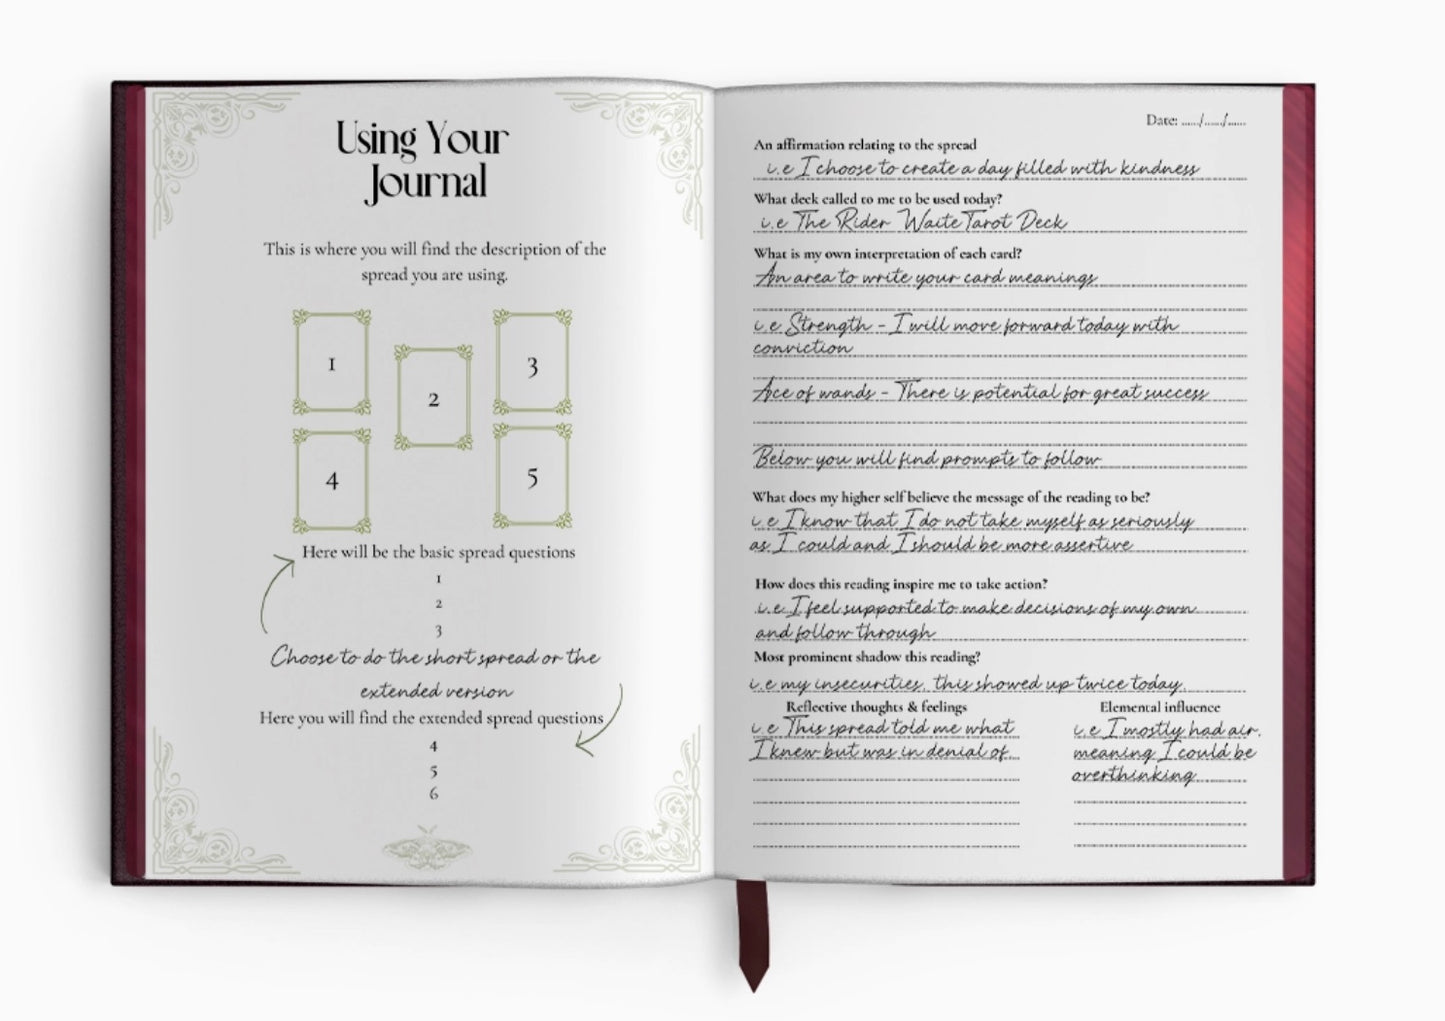 Using Your
Journal
This is where you will find the description of the
spread you are using.
1
2
3
4
5
Here will be the basic spread questions
1
2
3
Choose to do the short spread or the
extended version
Here you will find the extended spread questions
4
5
6
Date: ...../...../.....
An affirmation relating to the spread
i.e I choose to create a day filled with kindness
What deck called to me to be used today?
i.e The Rider Waite Tarot Deck
What is my own interpretation of each card?
An area to write your card meanings
i.e Strength - I will move forward today with
conviction
Ace of wands - There is potential for great success
Below you will find prompts to follow
What does my higher self believe the message of the reading to be?
i.e I know that I do not take myself as seriously
as I could and I should be more assertive
How does this reading inspire me to take action?
i.e I feel supported to make decisions of my own
and follow through
Most prominent shadow this reading?
i.e my insecurities, this showed up twice today.
Reflective thoughts & feelings
i.e This spread told me what
I knew but was in denial of
Elemental influence
i.e I mostly had air,
meaning I could be
overthinking